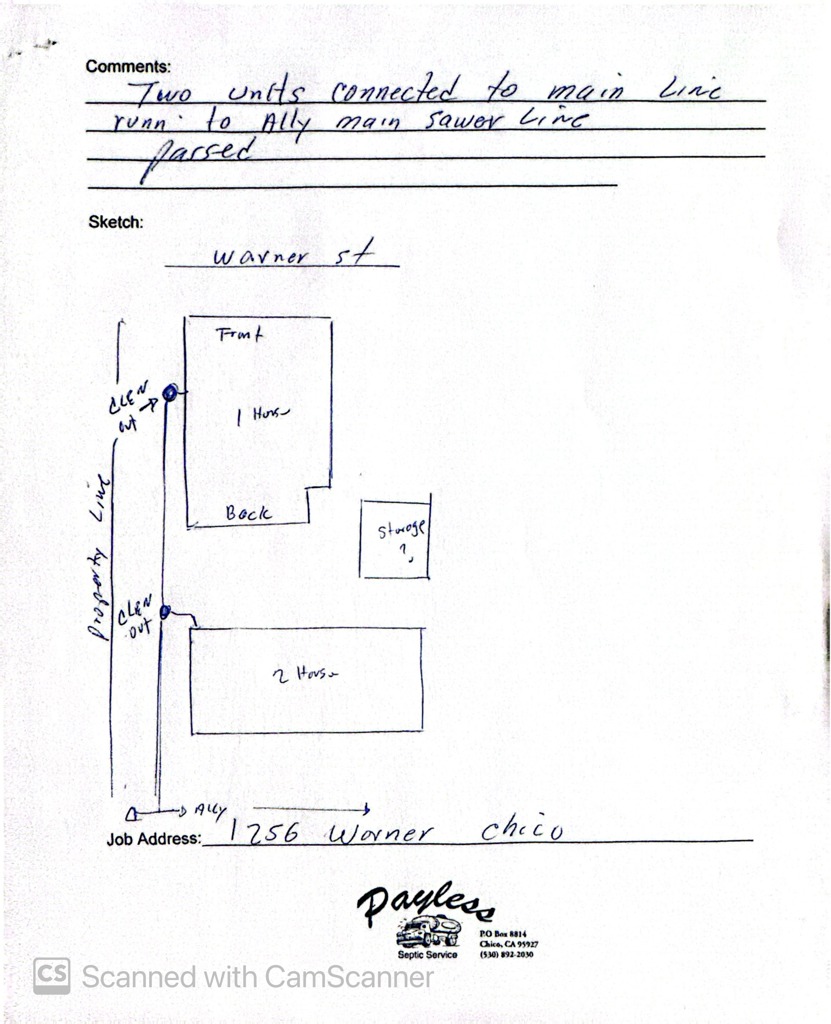 Comments:
Two units connected to main Line
runn. to Ally main sawer Line
passed
Sketch:
Warner st
Front
CLEN
out
1 House
Back
Property Line
Storage
?
CLEN
out
2 House
Ally
Job Address: 1256 Warner Chico
Payless
Septic Service
P.O Box 8814
Chico, CA 95927
(530) 892-2030
CS Scanned with CamScanner